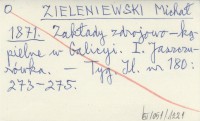 O ZIELENIEWSKI Michał
1871. Zakłady zdrojowo-ką-
pielne w Galicyi. I. Jaszczu-
rówka. — Tyg. Il. nr 180:
273-275.